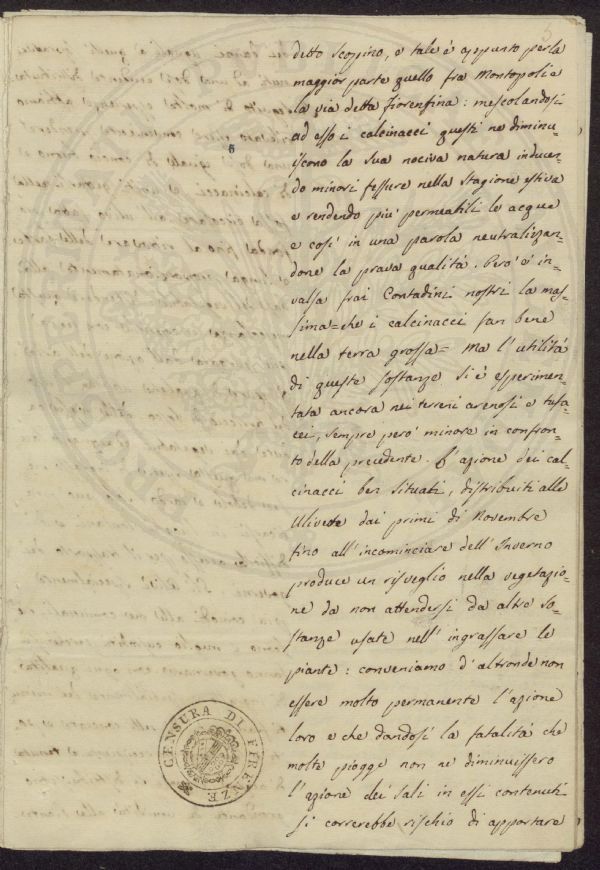 5
detto scoppino, e tale è appunto per la
maggior parte quello fra Montopoli e
la via detta fiorentina: mescolandosi
ad esso i calcinacci questi ne diminu=
iscono la sua nociva natura inducen=
do minori fessure nella stagione estiva
e rendendo più permeabili le acque
e così in una parola neutralizzan=
done la prava qualità. Però è in=
valsa frai Contadini nostri la mas=
sima = che i calcinacci fan bene
nella terra grossa = Ma l'utilità
di queste sostanze si è esperimen=
tata ancora nei terreni arenosi e tufa=
cei, sempre però minore in confron=
to della precedente. L'azione dei cal=
cinacci ben situati, distribuiti alle
Ulivete dai primi di Novembre
fino all'incominciare dell'Inverno
produce un risveglio nella vegetazio=
ne da non attendersi da altre so=
stanze usate nell'ingrassare le
piante: conveniamo d'altronde non
essere molto permanente l'azione
loro e che dandosi la fatalità che
molte piogge non ne diminuissero
l'azione dei sali in essi contenuti
si correrebbe rischio di apportare
5
CENSURA DI FIRENZE